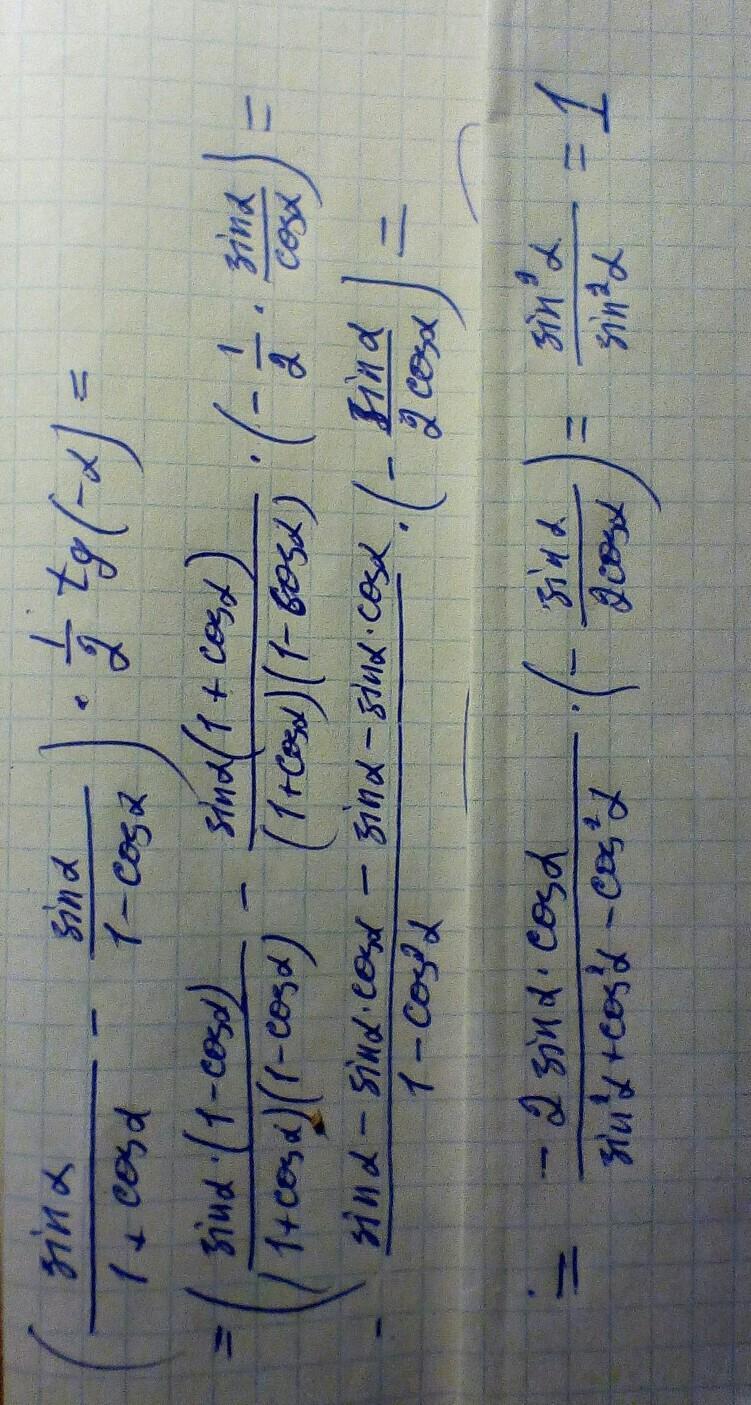 (sinα/(1+cosα) - sinα/(1-cosα)) · 1/2 tg(-α) =
= (sinα·(1-cosα)/((1+cosα)(1-cosα)) - sinα(1+cosα)/((1+cosα)(1-cosα))) · (-1/2 · sinα/cosα) =
- (sinα - sinα·cosα - sinα - sinα·cosα)/(1-cos²α) · (-sinα/(2cosα)) =
= (-2 sinα·cosα)/(sin²α+cos²α-cos²α) · (-sinα/(2cosα)) = sin²α/sin²α = 1